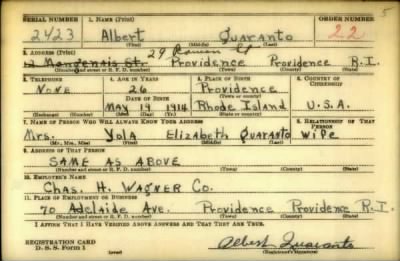 5
SERIAL NUMBER 1. NAME (Print) ORDER NUMBER
2423 Albert Quaranto 22
(First) (Middle) (Last)
2. ADDRESS (Print) 29
12 Mongenais St. Providence Providence R.I.
(Number and street or R. F. D. number) (Town) (County) (State)
3. TELEPHONE 4. AGE IN YEARS 5. PLACE OF BIRTH 6. COUNTRY OF CITIZENSHIP
NONE 26 Providence
DATE OF BIRTH (Town or county)
MAY 19 1914 Rhode Island U.S.A.
(Exchange) (Number) (Mo.) (Day) (Yr.) (State or country)
7. NAME OF PERSON WHO WILL ALWAYS KNOW YOUR ADDRESS 8. RELATIONSHIP OF THAT PERSON
Mrs. Yola Elizabeth Quaranto Wife
(Mr., Mrs., Miss) (First) (Middle) (Last)
9. ADDRESS OF THAT PERSON
SAME AS ABOVE
(Number and street or R. F. D. number) (Town) (County) (State)
10. EMPLOYER'S NAME
Chas. H. Wagner Co.
11. PLACE OF EMPLOYMENT OR BUSINESS
70 Adelaide Ave. Providence Providence R.I.
(Number and street or R. F. D. number) (Town) (County) (State)
I AFFIRM THAT I HAVE VERIFIED ABOVE ANSWERS AND THAT THEY ARE TRUE.
REGISTRATION CARD
D. S. S. Form 1 (over) Albert Quaranto
(Registrant's signature)